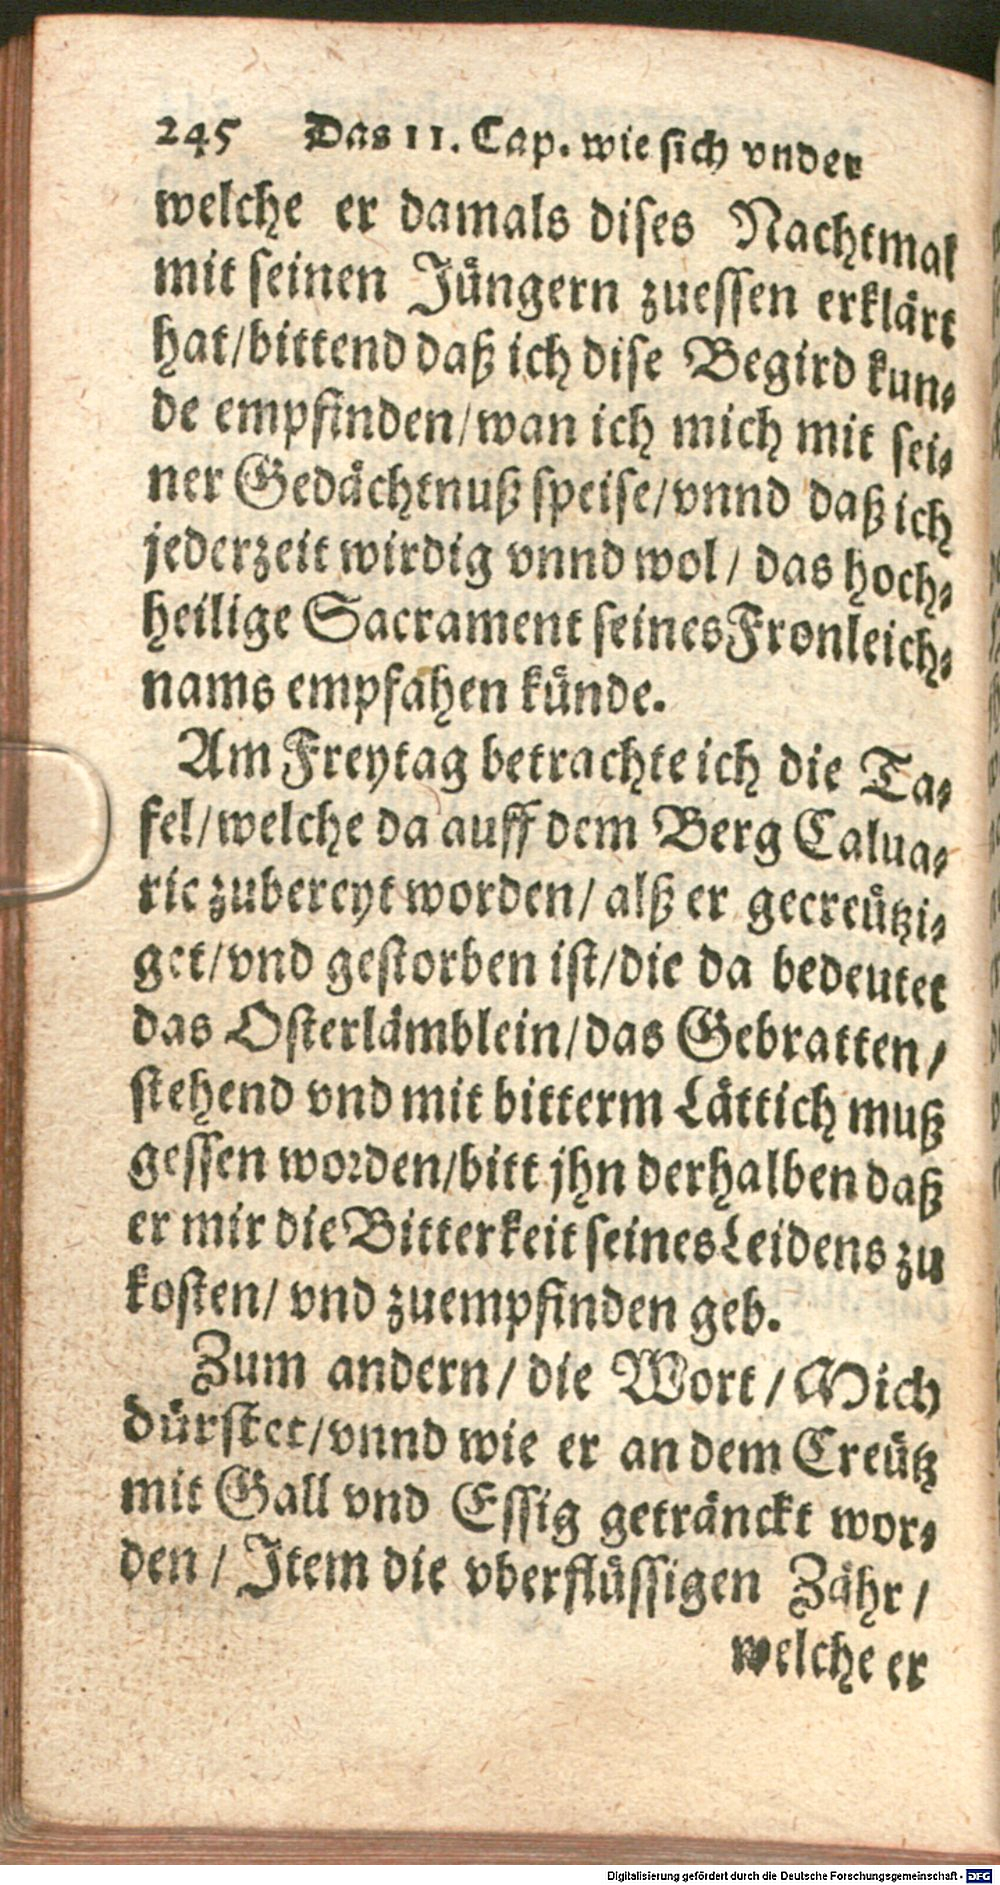 245 Das 11. Cap. wie sich vnder
welche er damals dises Nachtmal
mit seinen Jüngern zuessen erklärt
hat/bittend daß ich dise Begird kun⸗
de empfinden/wan ich mich mit sei⸗
ner Gedächtnuß speise/vnnd daß ich
jederzeit wirdig vnnd wol/ das hoch⸗
heilige Sacrament seines Fronleich⸗
nams empfahen künde.
Am Freytag betrachte ich die Ta⸗
fel/welche da auff dem Berg Calua⸗
rie zubereyt worden/ alß er gecreützi⸗
get/vnd gestorben ist/die da bedeutet
das Osterlämblein/das Gebratten/
stehend vnd mit bitterm Lättich muß
gessen worden/bitt jhn derhalben daß
er mir die Bitterkeit seines Leidens zu
kosten/ vnd zuempfinden geb.
Zum andern/ die Wort/ Mich
dürstet/vnnd wie er an dem Creütz
mit Gall vnd Essig getränckt wor⸗
den/ Item die vberflüssigen Zähr/
welche er
Digitalisierung gefördert durch die Deutsche Forschungsgemeinschaft - DFG